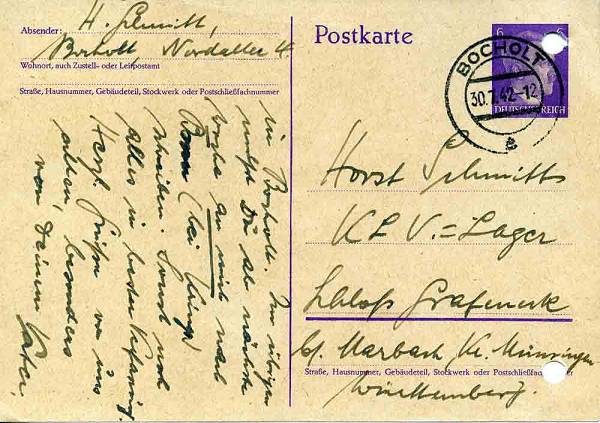 Absender: H. Schmitt,
Bocholt, Nordallee 4
Wohnort, auch Zustell- oder Leitpostamt
Straße, Hausnummer, Gebäudeteil, Stockwerk oder Postschließfachnummer
Postkarte
6
6
DEUTSCHES REICH
BOCHOLT
30.7.42-12
a
Horst Schmitts
KLV.=Lager
Schloß Grafeneck
b/ Marbach, Kr. Münsingen
Straße, Hausnummer, Gebäudeteil, Stockwerk oder Postschließfachnummer
Württemberg.
in Bocholt. Im übrigen
mußt Du ab nächste
Woche an mich nach
Bonn (bei
schreiben. Sonst noch
alles in bester Verfassung.
Herzl. Grüße von uns
allen, besonders
von Deinem Vater.